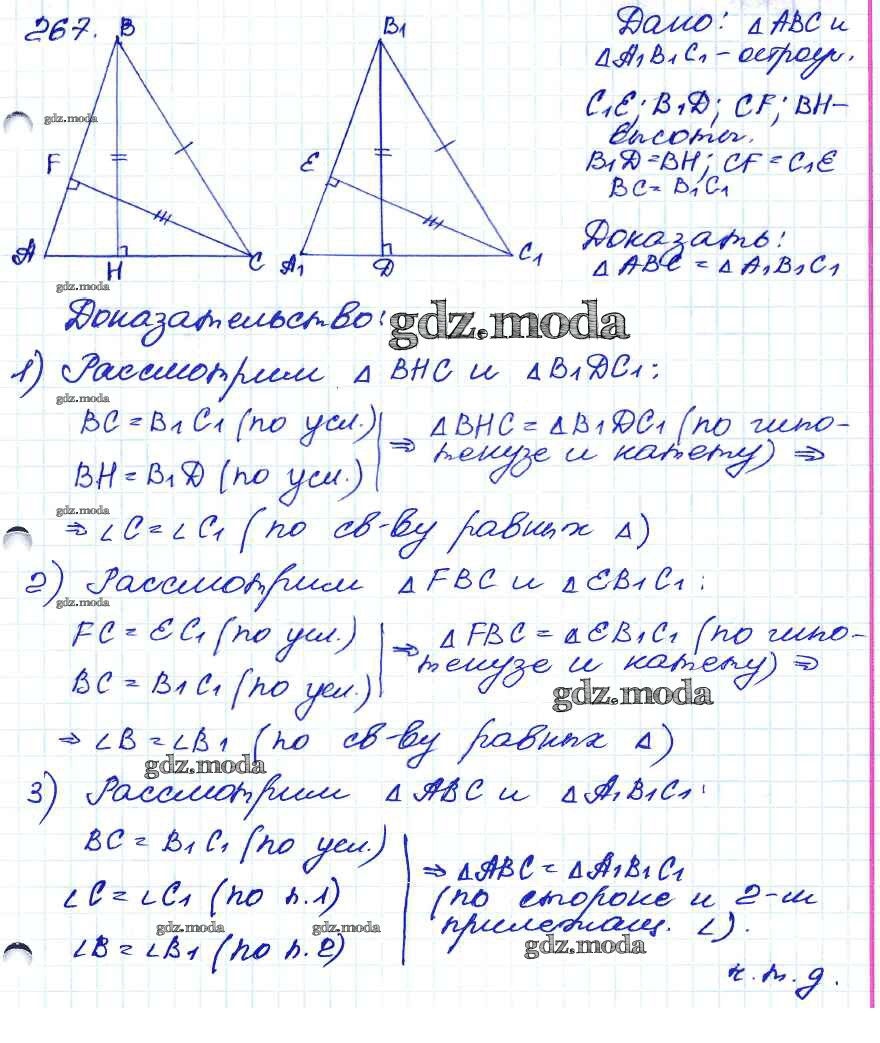 267.
B
B1
F
E
A
H
C
A1
D
C1
Дано: △ ABC и
△ A1B1C1 - остроуг.
C1E; B1D; CF; BH -
высоты.
B1D = BH; CF = C1E
BC = B1C1
Доказать:
△ ABC = △ A1B1C1
gdz.moda
gdz.moda
Доказательство:
gdz.moda
1) Рассмотрим △ BHC и △ B1DC1:
gdz.moda
BC = B1C1 (по усл.)
BH = B1D (по усл.)
⇒ △BHC = △B1DC1 (по гипо-
тенузе и катету) ⇒
gdz.moda
⇒ ∠C = ∠C1 (по св-ву равных △)
2) Рассмотрим △ FBC и △ EB1C1:
gdz.moda
FC = EC1 (по усл.)
BC = B1C1 (по усл.)
⇒ △ FBC = △EB1C1 (по гипо-
тенузе и катету) ⇒
gdz.moda
⇒ ∠B = ∠B1 (по св-ву равных △)
gdz.moda
3) Рассмотрим △ ABC и △ A1B1C1:
BC = B1C1 (по усл.)
∠C = ∠C1 (по п.1)
∠B = ∠B1 (по п.2)
⇒ △ABC = △A1B1C1
(по стороне и 2-м
прилежащ. ∠).
gdz.moda
gdz.moda
gdz.moda
ч.т.д.